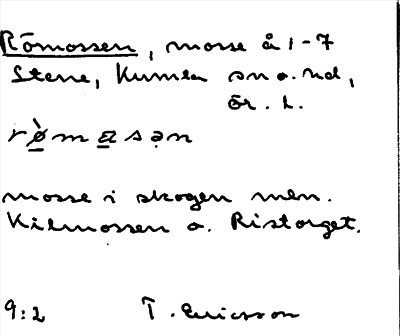 Römossen, mosse å 1-7
Stene, Kumla sn o. hd,
Ör. L.
mosse i skogen mln.
Kilmossen o. Ristorget.
9:2 T. Ericsson